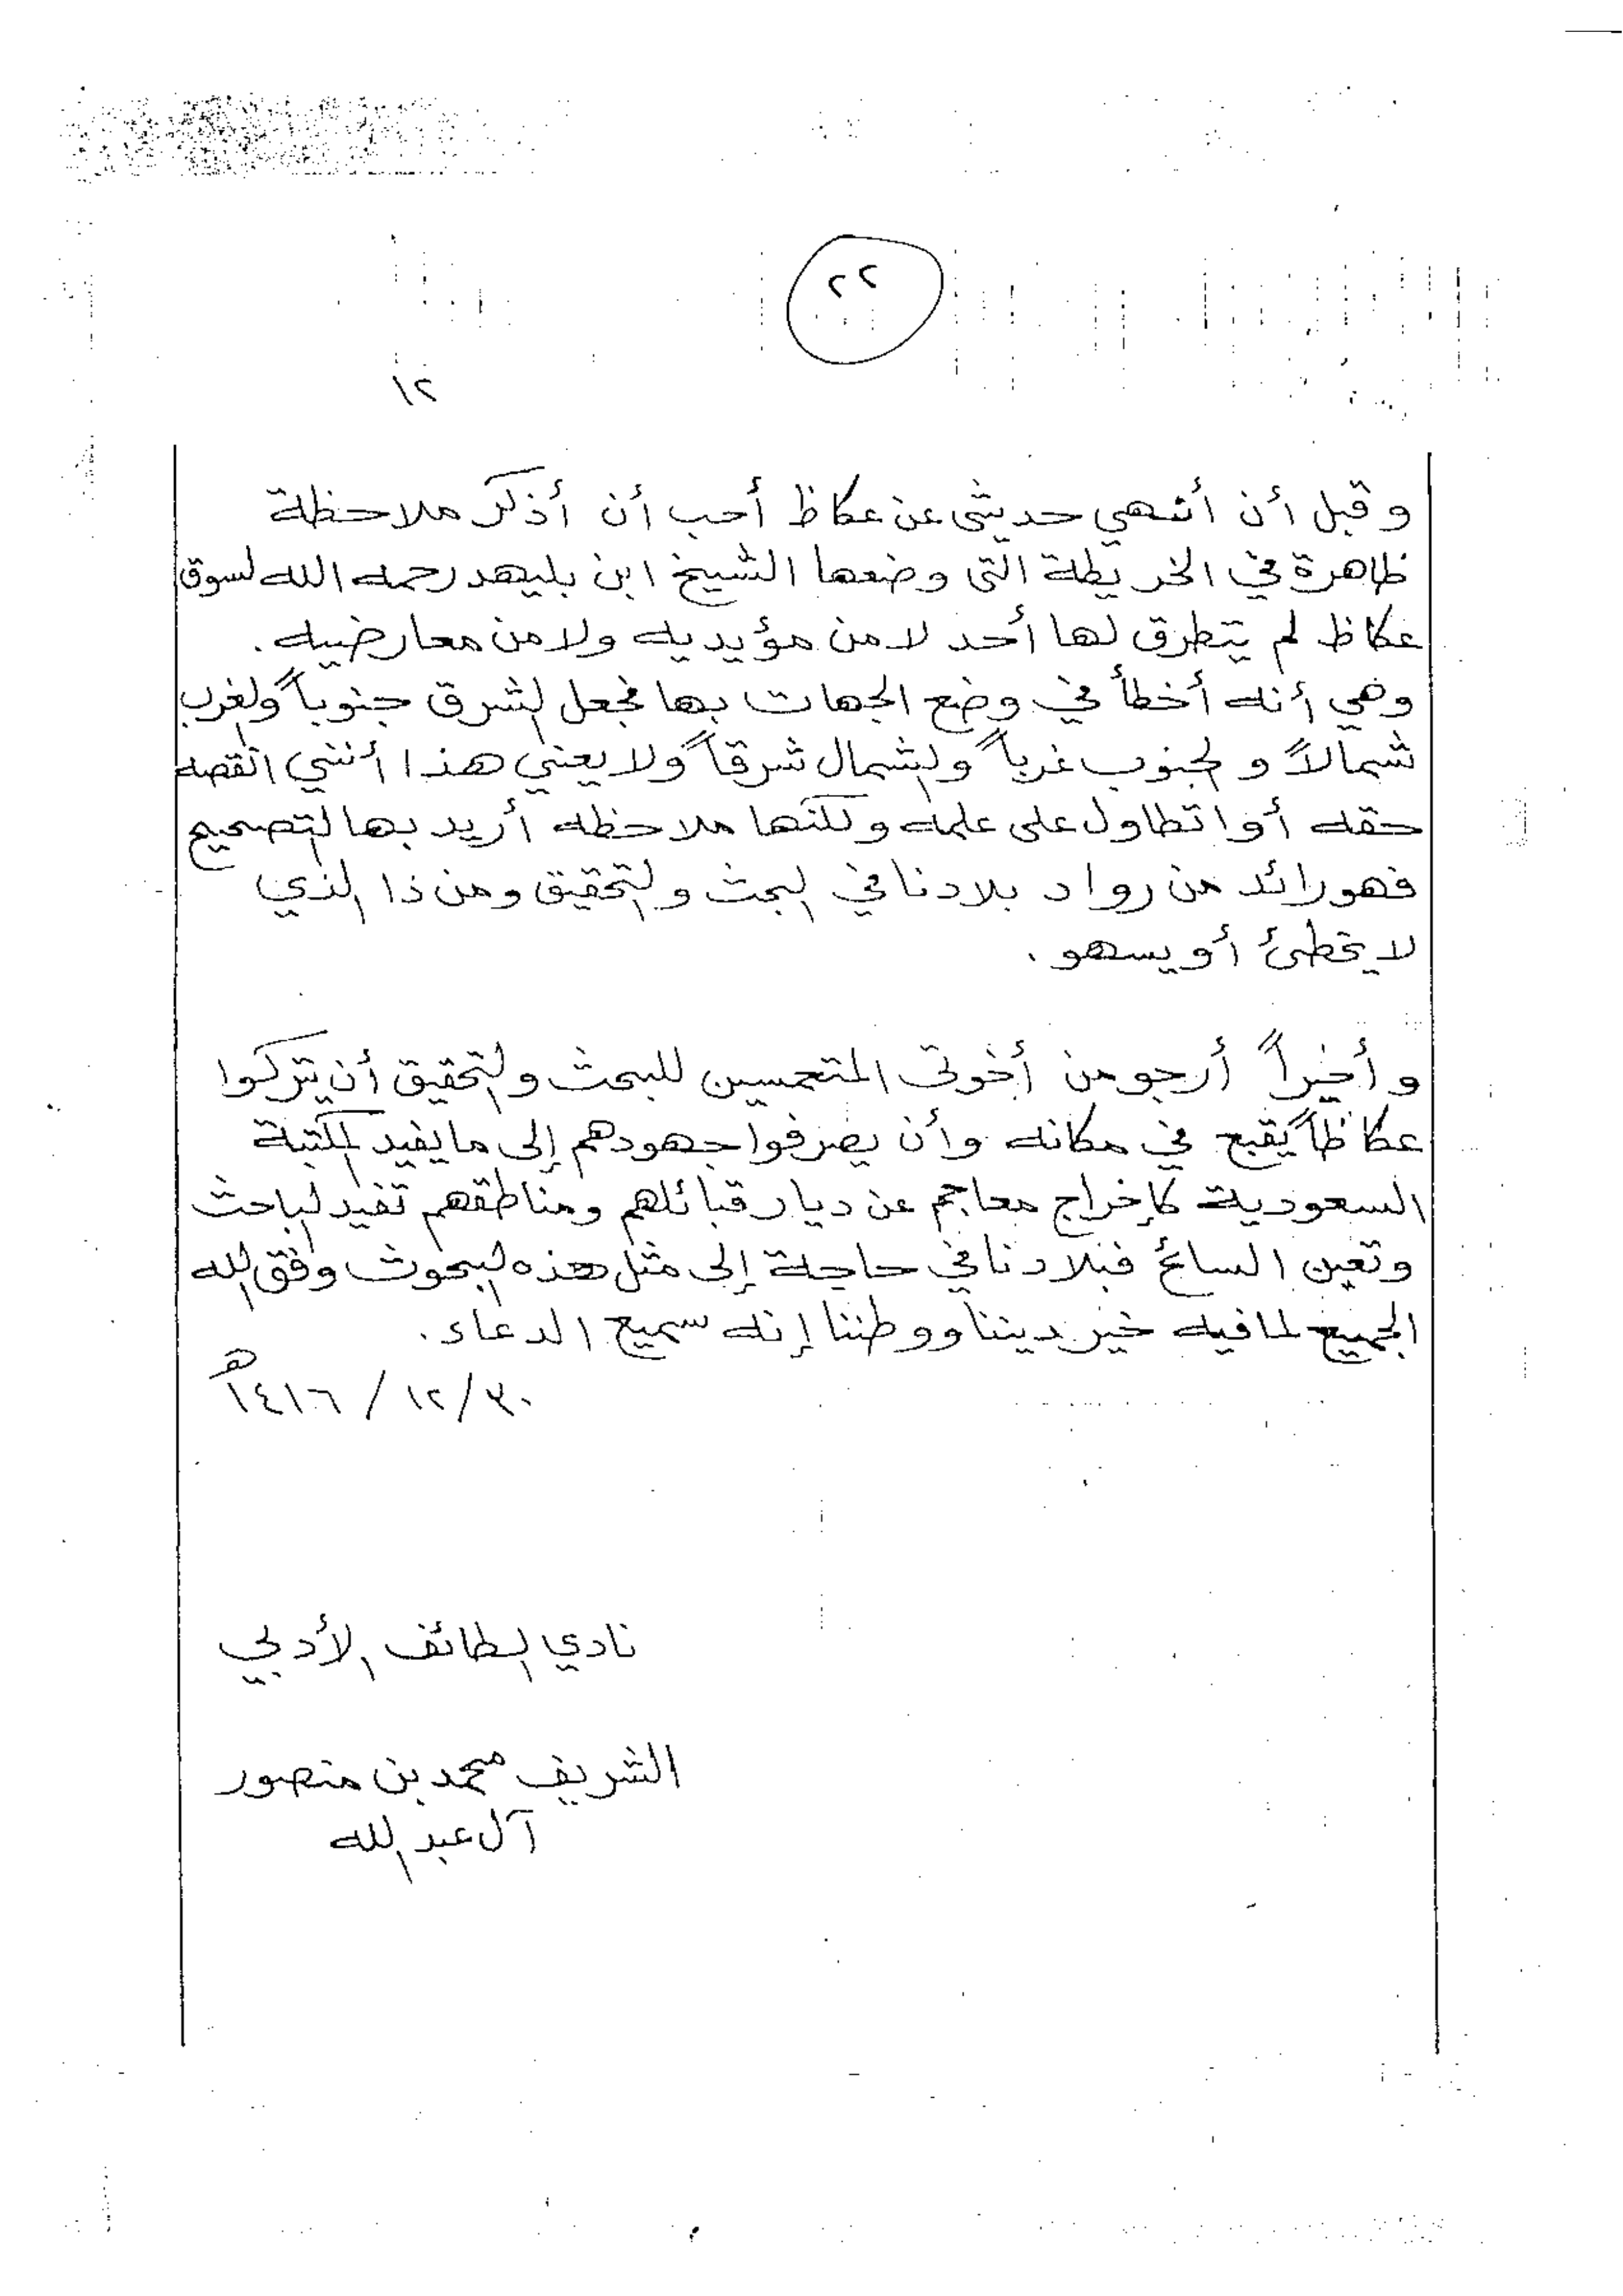 ٢٢
١٢
وقبل أن أنهي حديثى عن عكاظ أحب أن أذكر ملاحظة
ظاهرة في الخريطة التى وضعها الشيخ ابن بليهد رحمه الله لسوق
عكاظ لم يتطرق لها أحد لا من مؤيديه ولا من معارضيه .
وهي أنه أخطأ في وضع الجهات بها فجعل الشرق جنوباً والغرب
شمالاً والجنوب غرباً والشمال شرقاً ولا يعني هذا أنني انقصه
حقه أو اتطاول على علمه ولكنها ملاحظه أريد بها التصحيح
فهو رائد من رواد بلادنا في البحث والتحقيق ومن ذا الذي
لا يخطئ أو يسهو .
وأخيراً أرجو من أخوتى المتحمسين للبحث والتحقيق أن يتركوا
عكاظاً يقبع في مكانه وأن يصرفوا جهودهم إلى ما يفيد المكتبة
السعودية كإخراج معاجم عن ديار قبائلهم ومناطقهم تفيد الباحث
وتعين السائح فبلادنا في حاجة إلى مثل هذه البحوث وفق الله
الجميع لما فيه خير ديننا ووطننا إنه سميع الدعاء .
٣٠/١٢/١٤١٦هـ
نادي الطائف الأدبي
الشريف محمد بن منصور
آل عبد الله